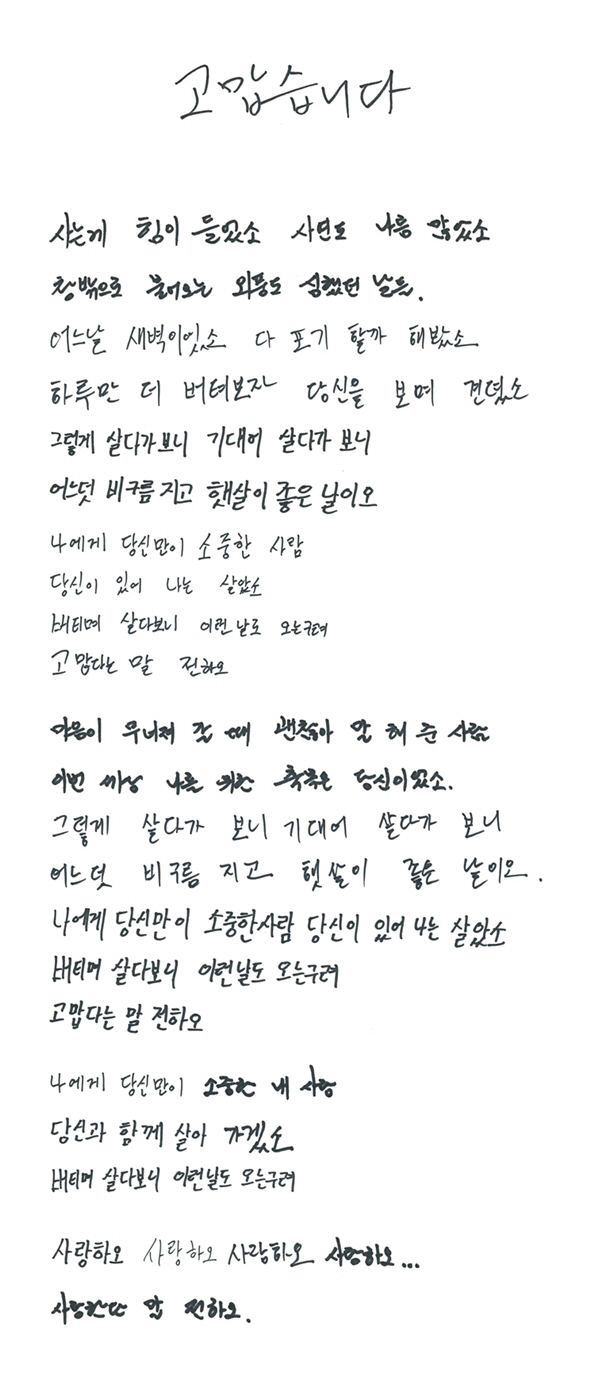 고맙습니다
사는게 힘이 들었소 사연도 나름 많았소
창밖으로 불어오는 외풍도 심했던 날들.
어느날 새벽이엇소 다 포기 할까 해봤소
하루만 더 버텨보자 당신을 보며 견뎠소
그렇게 살다가보니 기대어 살다가 보니
어느덧 비구름 지고 햇살이 좋은 날이오
나에게 당신만이 소중한 사람
당신이 있어 나는 살았소
버티며 살다보니 이런 날도 오는구려
고맙다는 말 전하오
마음이 무너져 갈 때 괜찮아 말 해 준 사람
이번 세상 나를 위한 축복은 당신이었소.
그렇게 살다가 보니 기대어 살다가 보니
어느덧 비구름 지고 햇살이 좋은 날이오.
나에게 당신만이 소중한사람 당신이 있어 나는 살았소
버티며 살다보니 이런날도 오는구려
고맙다는 말 전하오
나에게 당신만이 소중한 내 사랑
당신과 함께 살아 가겠소
버티며 살다보니 이런날도 오는구려
사랑하오 사랑하오 사랑하오 사랑하오...
사랑한단 말 전하오.